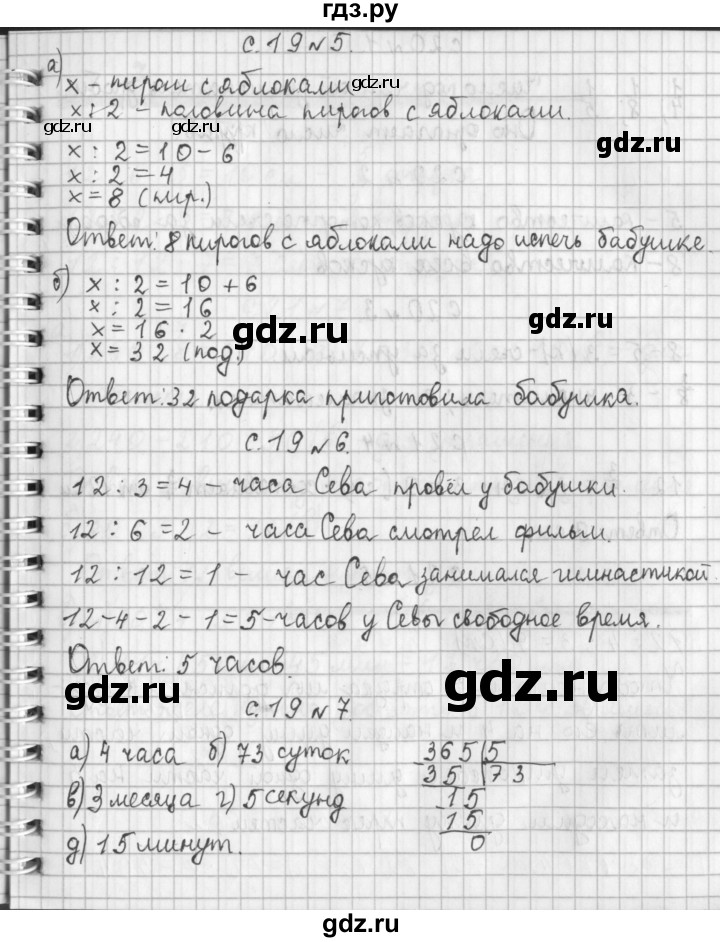 гдз.ру
с.19 №5.
а)
x - пироги с яблоками
x : 2 - половина пирогов с яблоками.
gdz.ru gdz.ru gdz.ru
x : 2 = 10 - 6
x : 2 = 4
x = 8 (пир.)
Ответ: 8 пирогов с яблоками надо испечь бабушке.
б) x : 2 = 10 + 6
x : 2 = 16
x = 16 · 2
x = 32 (под.)
gdz.ru gdz.ru
Ответ: 32 подарка приготовила бабушка.
с.19 №6.
12 : 3 = 4 - часа Сева провёл у бабушки.
12 : 6 = 2 - часа Сева смотрел фильм.
12 : 12 = 1 - час Сева занимался гимнастикой.
12-4-2-1=5-часов у Севы свободное время.
Ответ: 5 часов.
gdz.ru gdz.ru
с.19 №7.
а) 4 часа б) 73 суток
в) 3 месяца г) 5 секунд
д) 15 минут.
365 5
35 73
15
15
0
gdz.ru gdz.ru gdz.ru
gdz.ru